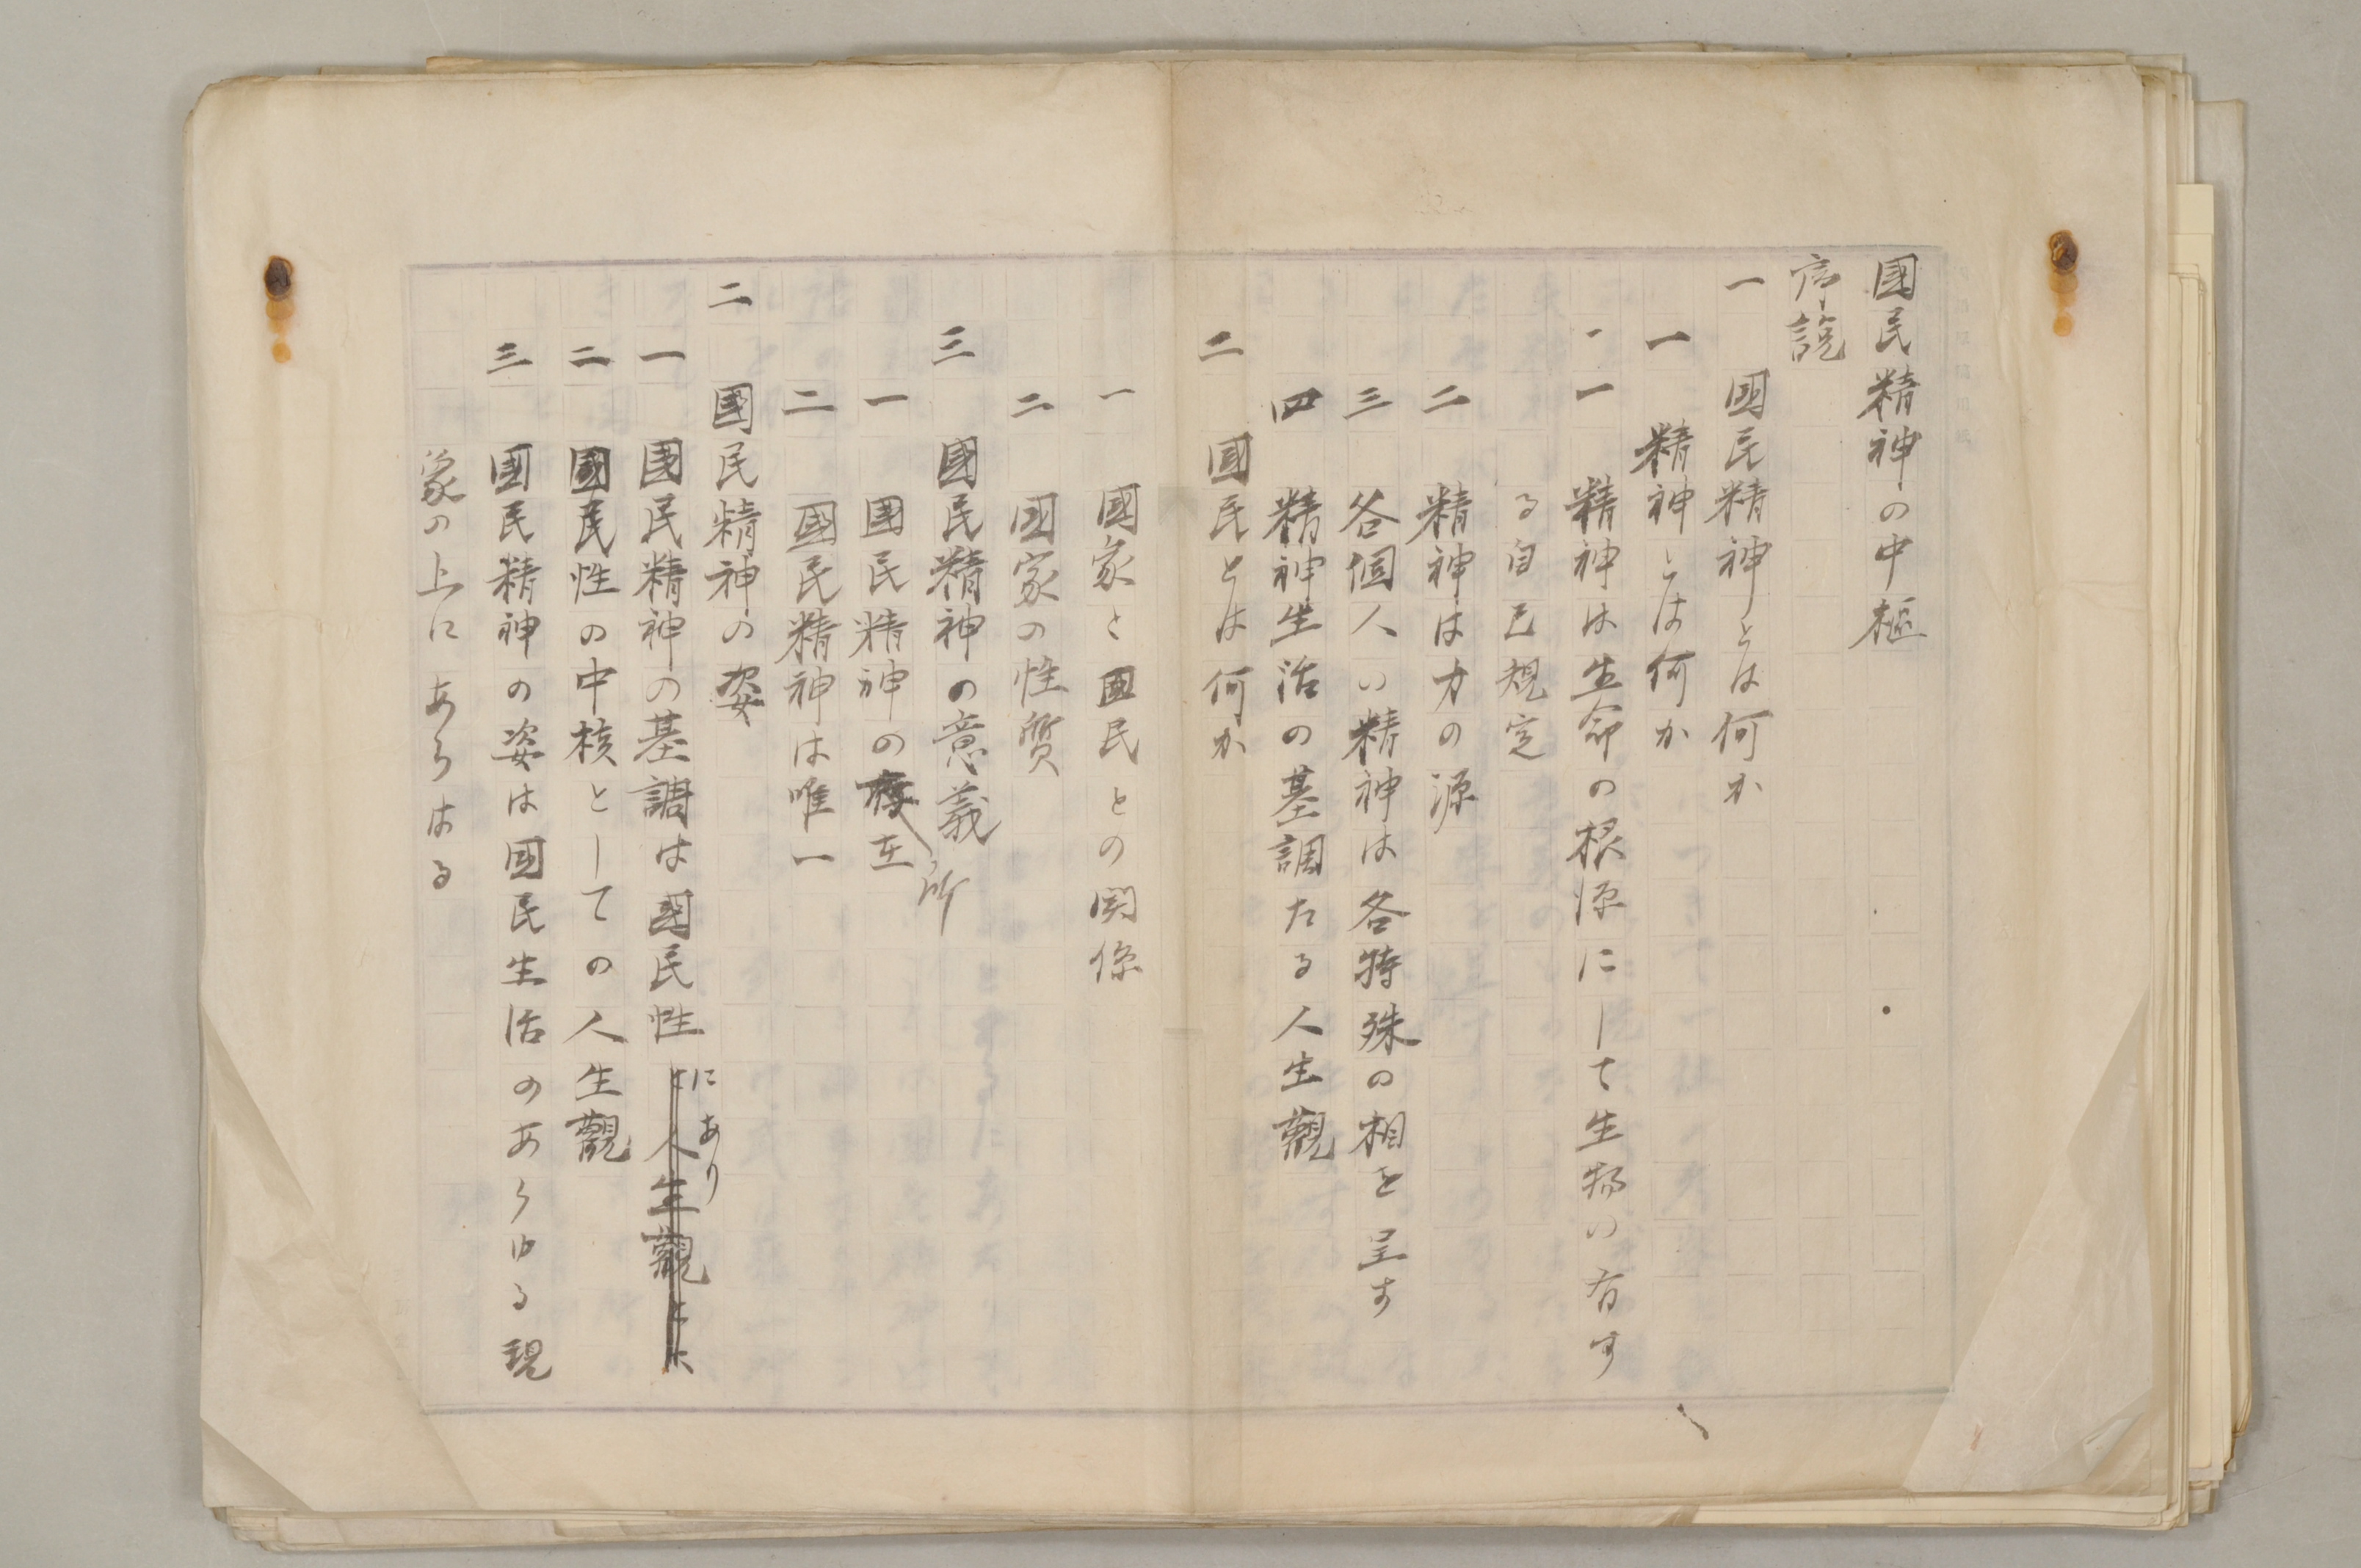 國民精神の中樞
序說
一 國民精神とは何か
一 精神とは何か
一 精神は生命の根源にして生物の有す
る自己規定
二 精神は力の源
三 各個人の精神は各特殊の相を呈す
四 精神生活の基調たる人生觀
二 國民とは何か
一 國家と國民との関係
二 国家の性質
三 國民精神の意義
一 國民精神の在所
二 國民精神は唯一
二 國民精神の姿
一 國民精神の基調は國民性にあり
と人生觀とに
二 國民性の中核としての人生觀
三 國民精神の姿は國民生活のあらゆる現
象の上にあらはる